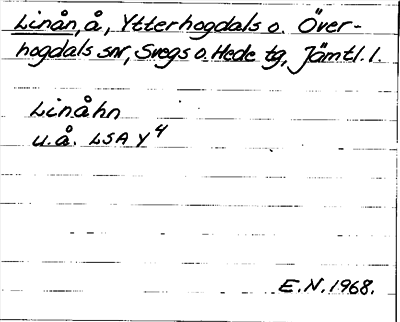 Linån, å, Ytterhogdals o. Över-
hogdals snr, Svegs o. Hede tg, Jämtl. l.
Linåhn
u.å. LSA Y 4
E.N. 1968.